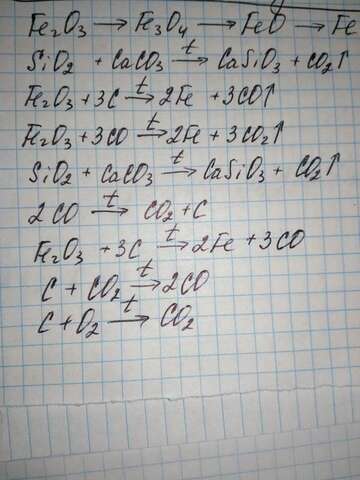 Fe₂O₃ → Fe₃O₄ → FeO → Fe
SiO₂ + CaCO₃ →t CaSiO₃ + CO₂↑
Fe₂O₃ + 3C →t 2Fe + 3CO↑
Fe₂O₃ + 3CO →t 2Fe + 3CO₂↑
SiO₂ + CaCO₃ →t CaSiO₃ + CO₂↑
2CO →t CO₂ + C
Fe₂O₃ + 3C →t 2Fe + 3CO
C + CO₂ →t 2CO
C + O₂ →t CO₂